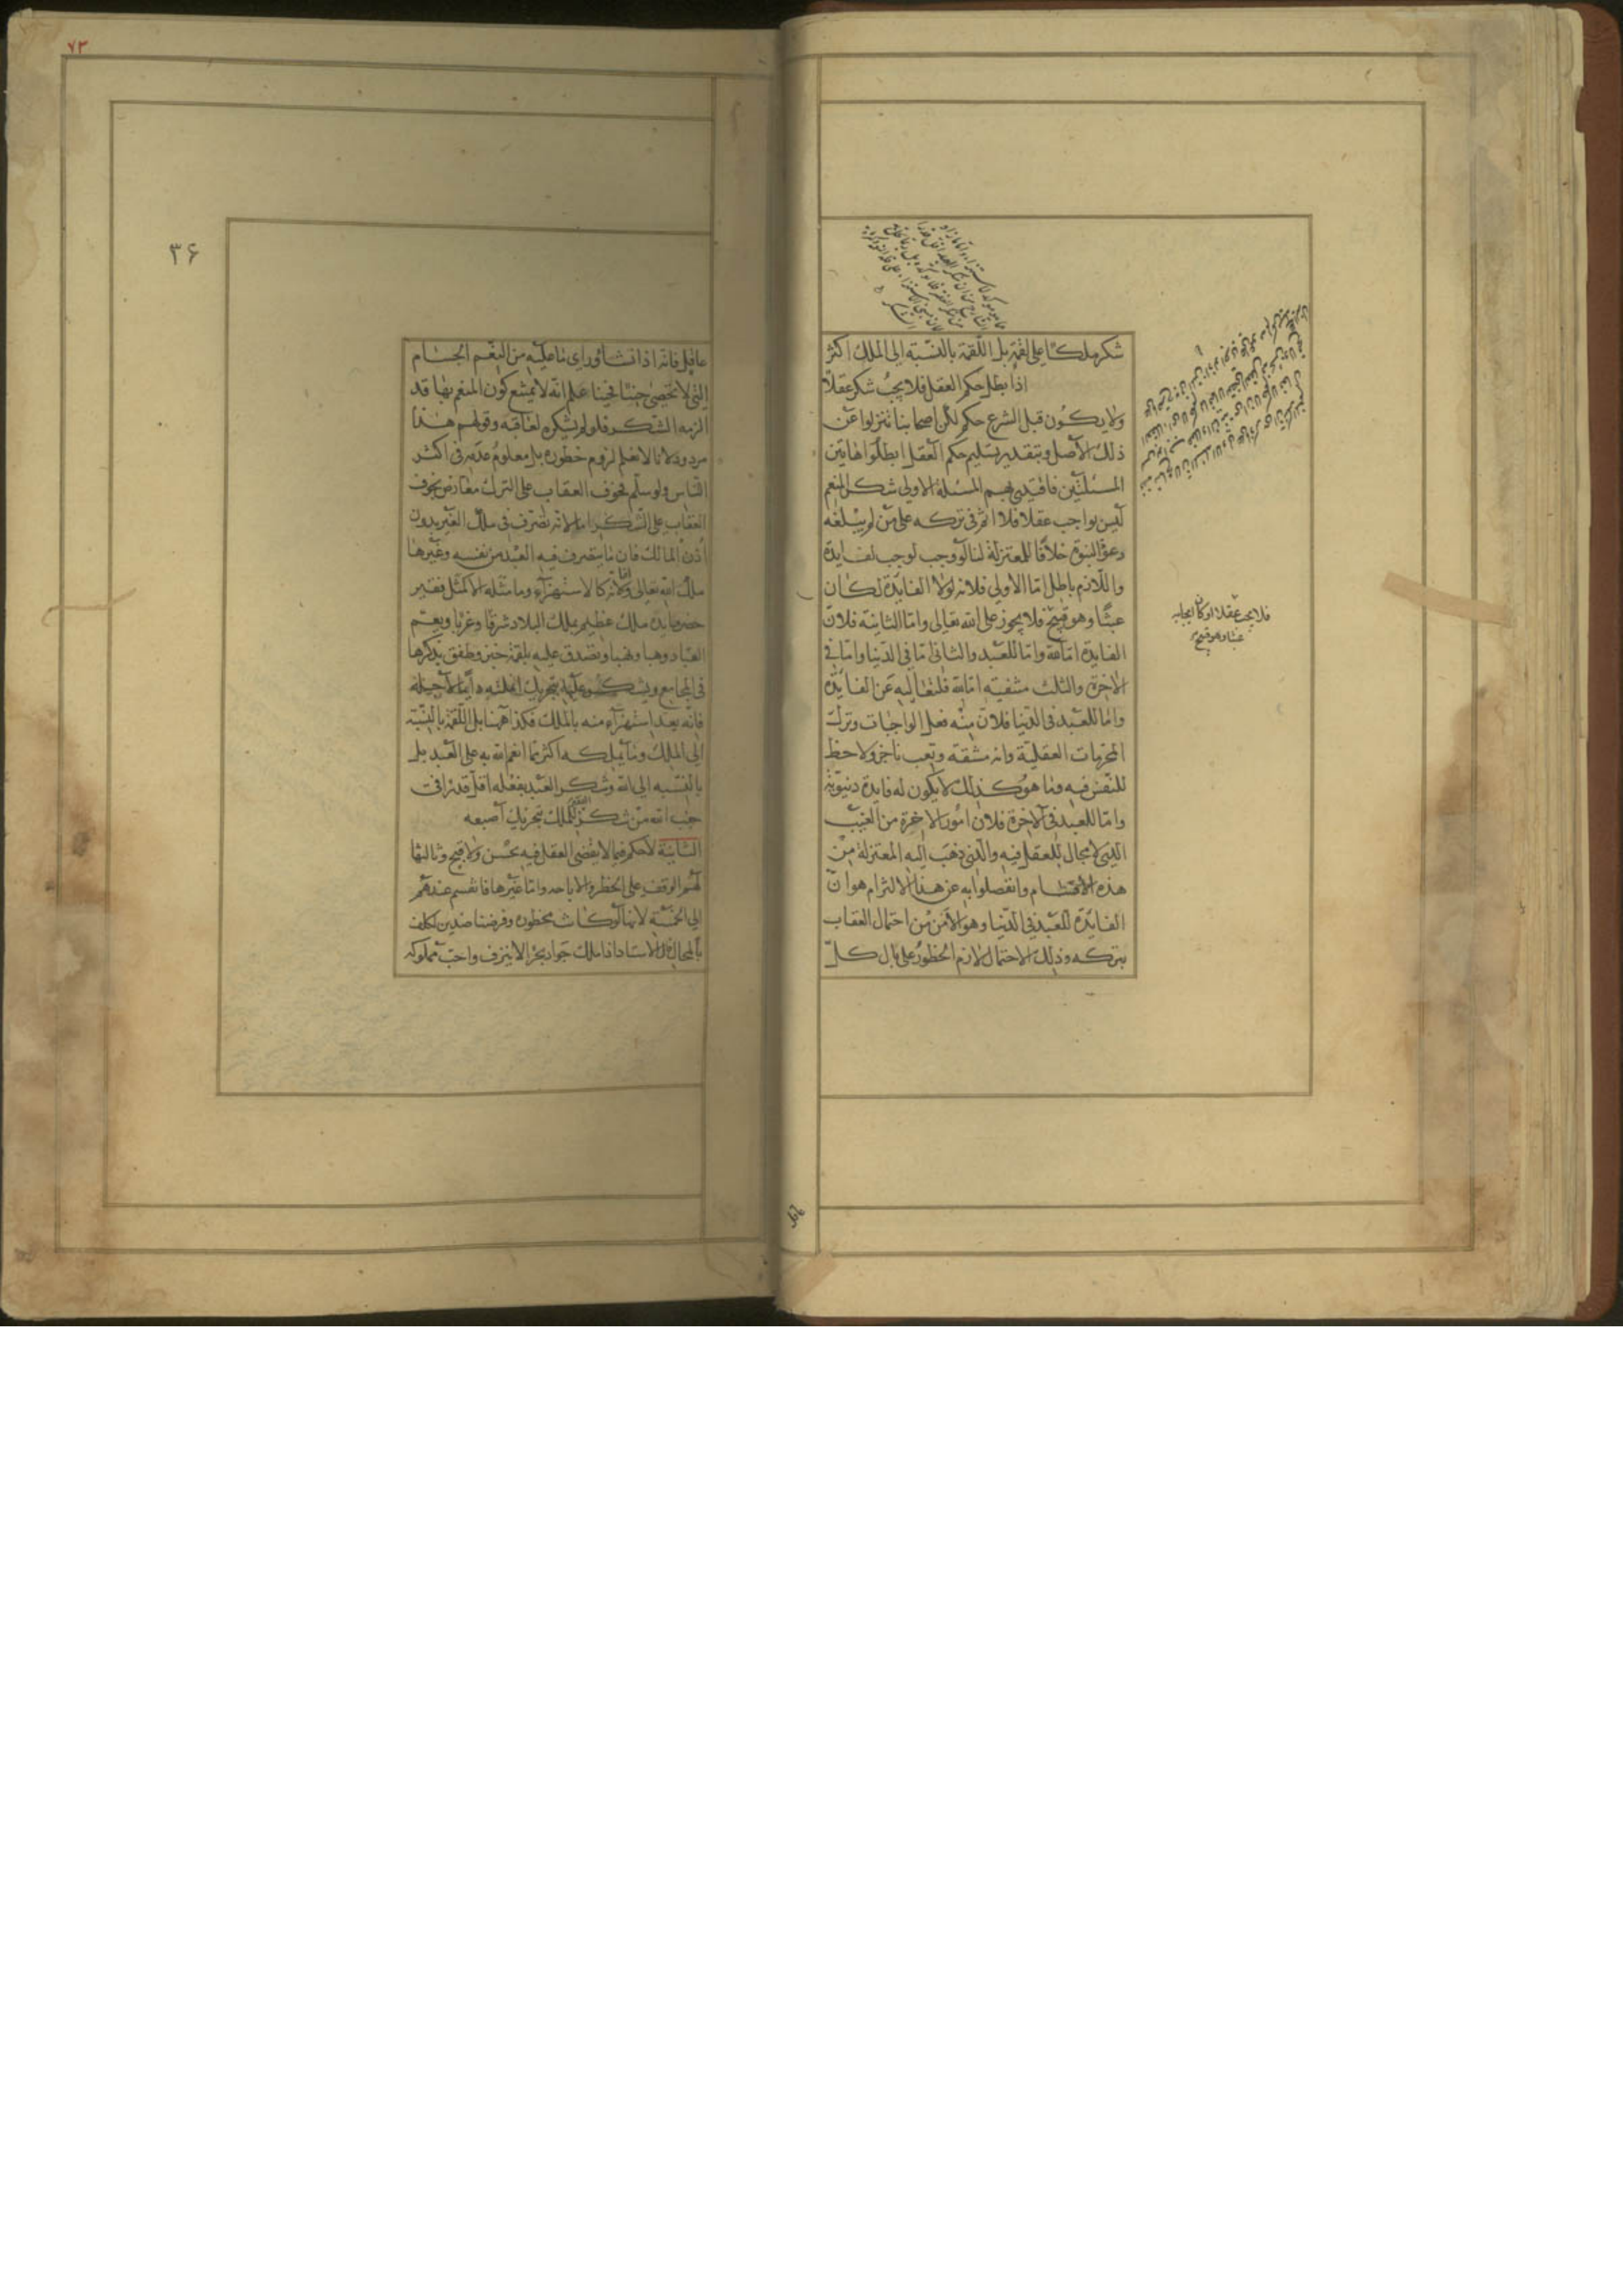 شكر ملكًا على لقمة بل اللقمة بالنسبة الى الملك اكثر
اذا بطل حكم العقل فلا يجب شكر عقلًا
ولا يكون قبل الشرع حكم لكن اصحابنا تنزلوا عن
ذلك الاصل وبتقدير تسليم حكم العقل ابطلوا هاتين
المسئلتين فاقتدى بهم المسئلة الاولى شكر المنعم
ليس بواجب عقلا فلا اثم في تركه على من لم يبلغه
دعوة النبوة خلافًا للمعتزلة لنا لو وجب لوجب لفايدة
واللازم باطل اما الاولى فلانه لولا الفايدة لكان
عبثًا وهو قبيح فلا يجوز على الله تعالى واما الثانية فلان
الفايدة اما لله واما للعبد والثاني اما في الدنيا واما في
الاخرة والثلث منتفية اما لله فلتعاليه عن الفايدة
واما للعبد في الدنيا فلان منه فعل الواجبات وترك
المحرمات العقلية وانه مشقة وتعب ناجز ولا حظ
للنفس فيه وما هو كذلك لا يكون له فايدة دنيوية
واما للعبد في الاخرة فلان امور الاخرة من الغيب
الذي لا مجال للعقل فيه والذي ذهب اليه المعتزلة من
هذه الاقسام وانفصلوا به عن هذا الالتزام هو ان
الفايدة للعبد في الدنيا وهو الامن من احتمال العقاب
بتركه وذلك الاحتمال لازم الخطور على بال كل
فلا يجب عقلا او كان ايجابه
عبثا وهو قبيح
عاقل
٧٣
٣۶
عاقل فانه اذا نشأ وراى ما عليه من النعم الجسام
التي لا تحصى حينًا فحينا علم انه لا يمتنع كون المنعم بها قد
الزمه الشكر فلو لم يشكره لعاقبه وقولهم هذا
مردود لانا لا نعلم لزوم خطوره بل معلوم عدمه في اكثر
الناس ولو سلم فخوف العقاب على الترك معارض بخوف
العقاب على الشكر اما لانه تصرف في ملك الغير بدون
اذن المالك فان ما يتصرف فيه العبد من نفسه وغيرها
ملك الله تعالى واما لانه كالاستهزاء وما مثله الا كمثل فقير
حضر مايدة ملك عظيم يملك البلاد شرقًا وغربًا ويعم
العباد وهبا ونهبا وتصدق عليه بلقمة خبز وطفق يذكرها
في المجامع ويشكره عليها بتحريك انملته دايمًا لاجله
فانه يعد استهزاء منه بالملك فكذا ههنا بل اللقمة بالنسبة
الى الملك وما يملكه اكثر مما انعم الله به على العبد بل
بالنسبه الى الله وشكر العبد بفعله اقل قدرا في
جنب الله من شكر الفقير للملك بتحريك اصبعه
الثانية لا حكم فيما لا يقضي العقل فيه بحسن ولا قبح وثالثها
لهم الوقف على الحظر والاباحه واما غيرها فانقسم عندهم
الى الخمسة لانها لو كانت محظوره وفرضنا ضدين لكلف
بالمحال قال الاستاد اذا ملك جواد بحرًا لا ينزف واحب مملوكه